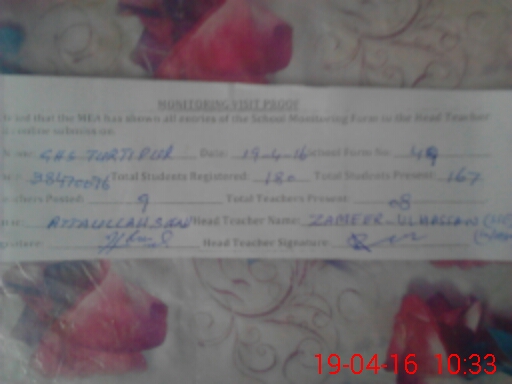 MONITORING VISIT PROOF
that the MEA has shown all entries of the School Monitoring Form to the Head Teacher
online submission.
GHS Date: 19-4-16 School Form No: 49
38470076 Total Students Registered: 180 Total Students Present: 167
Posted: 9 Total Teachers Present: 08
ATTAULLAH Head Teacher Name: ZAMEER-UL HASSAN
Head Teacher Signature:
19-04-16 10:33